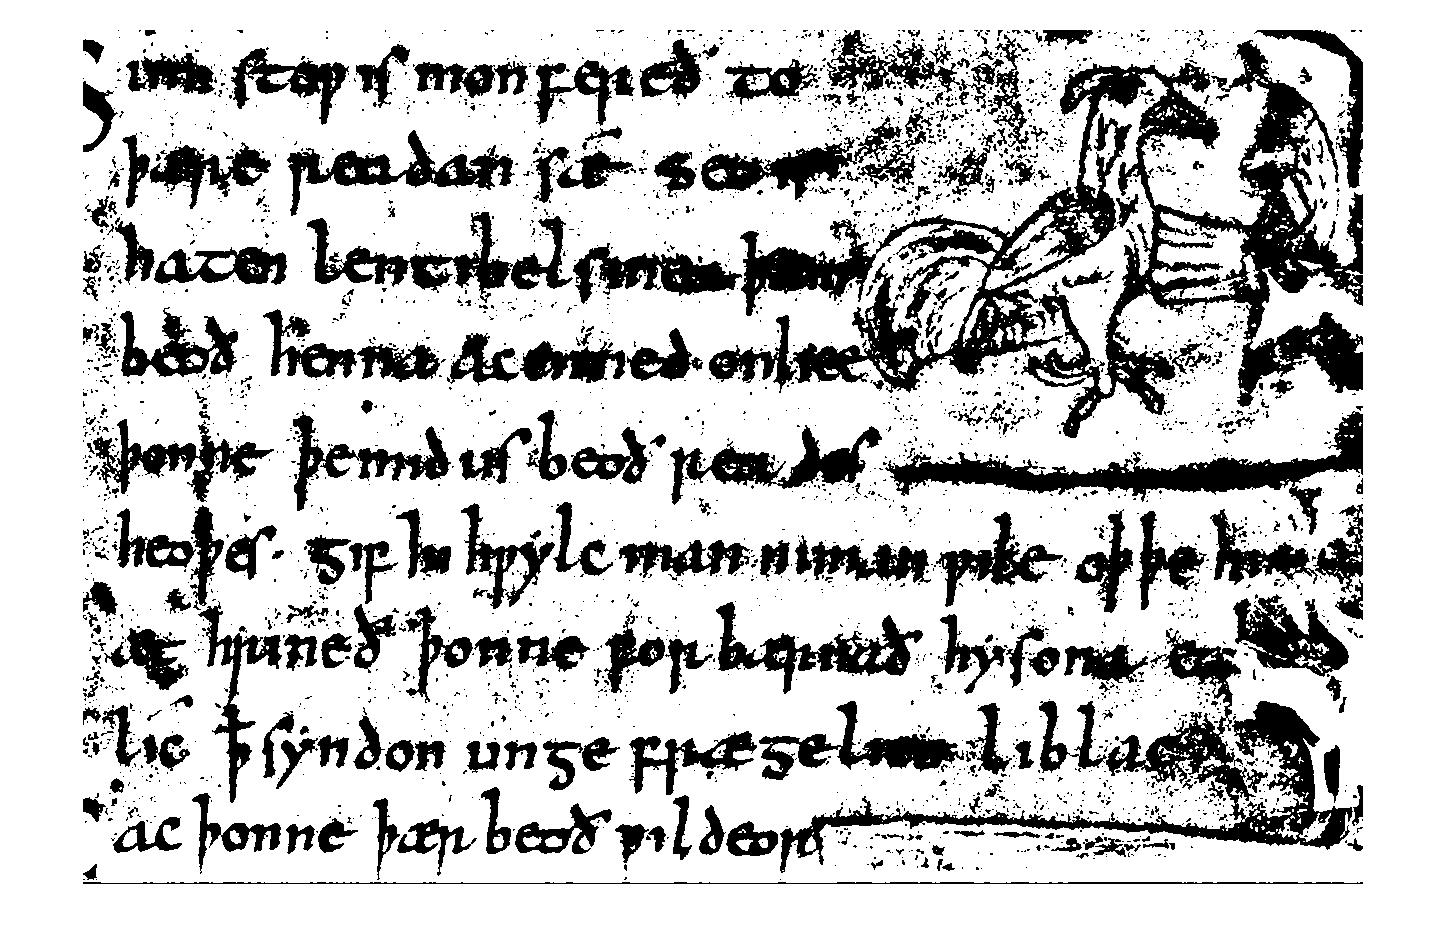 Sum stoƿ is mon fereð to
þære readan sæ seo
haten lentibelsinea þær
beoð henna acenned onlice
þonne þe mid us beoð reades
heoƿes· gif hi hƿylc man niman ƿile oþþe hira
æt hrineð þonne forbærnað hy sona eal
lic ꝥ syndon ungefrægelicu liblac
ac þonne þær beoð ƿildeor